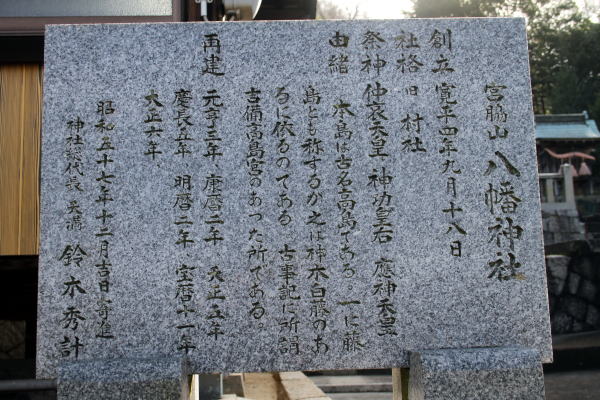 宮脇山 八幡神社
創立 寛平四年九月十八日
社格 旧 村社
祭神 仲哀天皇 神功皇后 應神天皇
由緒 本島は古名高島である。一に藤
島とも称するが之は神木白藤のあ
るに依るのである 古事記に所謂
吉備高島宮のあった所である。
再建 元亨三年 康暦二年 天正五年
慶長五年 明暦二年 宝暦十一年
大正六年
昭和五十七年十二月吉日寄進
神社総代長 鈴木秀計